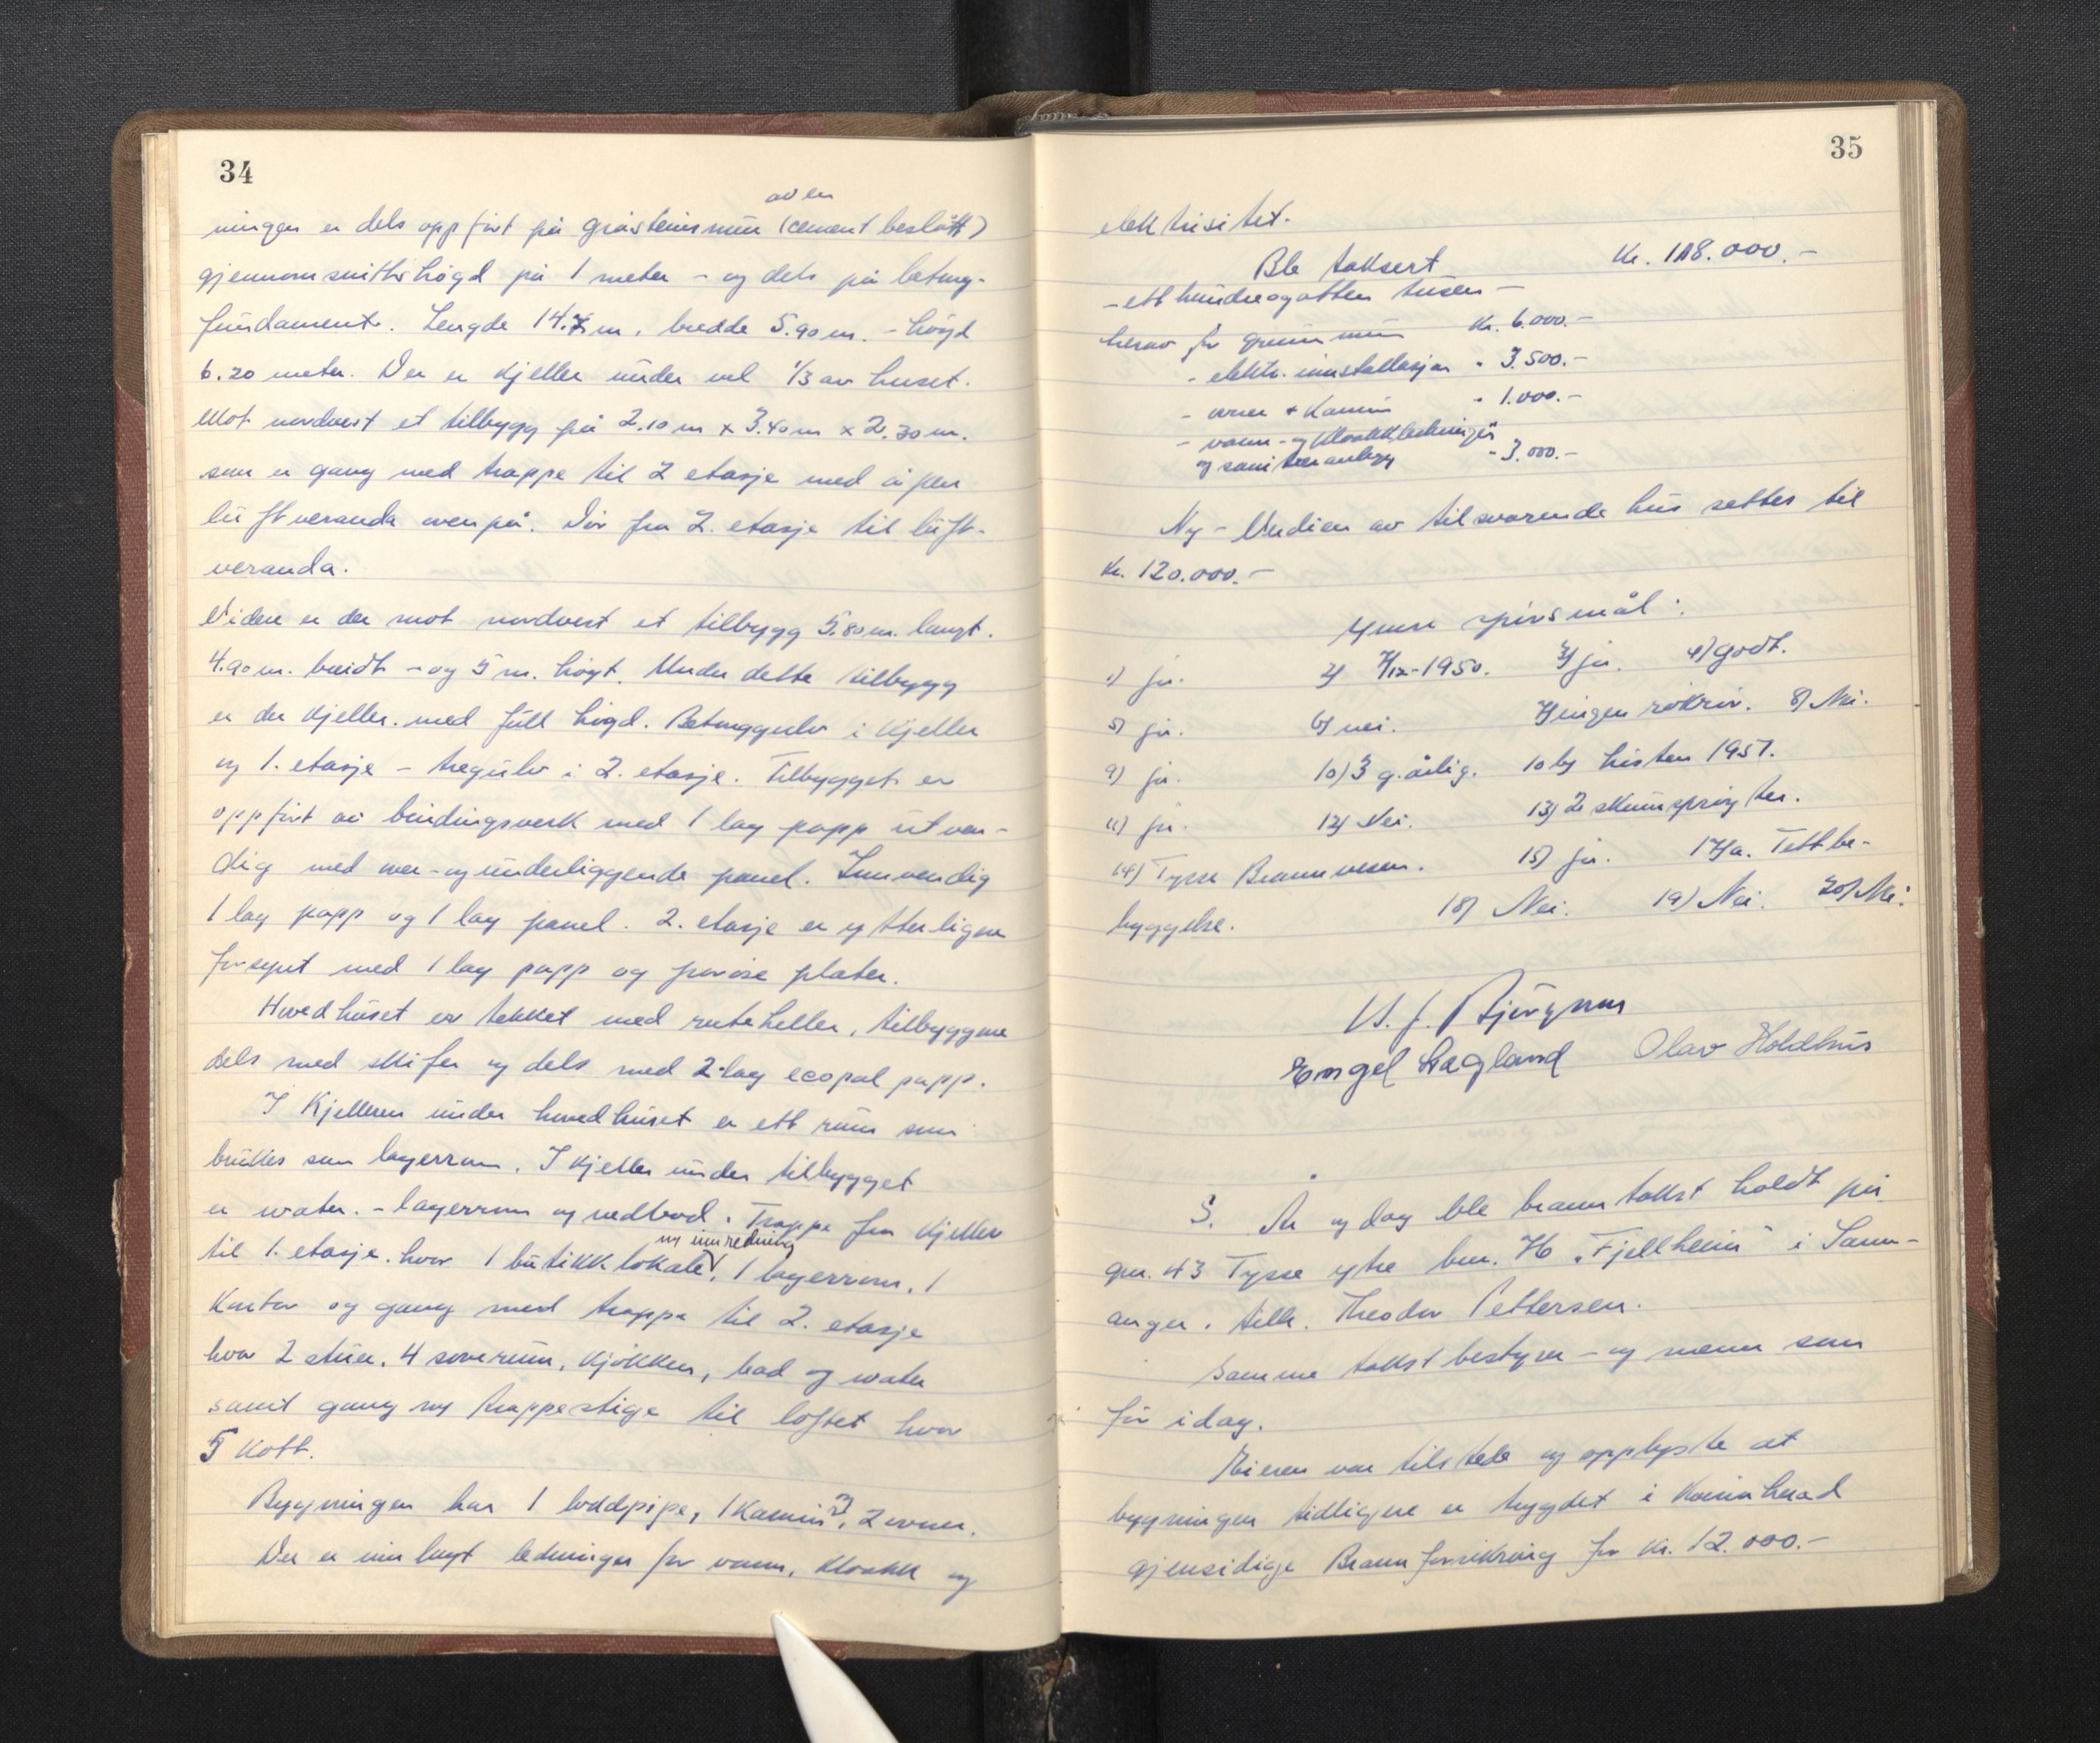 34
av en
ningen er dels oppført på gråsteinsmur (cement beslått)
gjennomsnittshøgd på 1 meter - og dels på betong-
fundament. Lengde 14. m, bredde 5.90 m. - høgd
6.20 meter. Der er kjeller under vel 1/3 av huset.
Mot nordvest et tilbygg på 2.10 m x 3.40 m x 2.30 m.
som er gang med trappe til 2 etasje med åpen
luftveranda ovenpå. Dør fra 2. etasje til luft-
veranda.
Videre er der mot nordvest et tilbygg 5.80 m. langt.
4.90 m. breidt - og 5 m. høgt. Under dette tilbygg
er der kjeller med full høgd. Betonggulv i kjeller
og 1. etasje - tregulv i 2. etasje. Tilbygget er
oppført av bindingsverk med 1 lag papp utven-
dig med over- og underliggende panel. Innvendig
1 lag papp og 1 lag panel. 2. etasje er ytterligere
forsynt med 1 lag papp og porøse plater.
Hovedhuset er tekket med ruteheller, tilbyggene
dels med skifer og dels med 2 lag ecopal papp.
I kjelleren under hovedhuset er ett rum som
brukes som lagerrom. I kjeller under tilbygget
er water. - lagerrum og vedbod. Trappe fra kjeller
ny innredning
til 1. etasje. hvor 1 butikklokale, 1 lagerrom, 1
kontor og gang med trappe til 2. etasje
hvor 2 stuer, 4 soverum, kjøkken, bad og water
samt gang og trappestige til loftet hvor
5 kott.
Bygningen har 1 loddpipe, 1 kamin, 2 ovner.
Der er innlagt ledninger for vann, kloakk og
35
elektrisitet.
Ble taksert Kr. 118.000.-
- etthundreogatten tusen -
herav for grunnmur Kr. 6.000.-
- elektr. innstallasjon " 3.500.-
- ovner + kamin " 1.000.-
- vann- og kloakkledninger
og sanitæranlegg " 3.000.-
Ny-Verdien av tilsvarende hus settes til
Kr. 120.000.-
Ymse spørsmål:
1) ja. 2) 7/12-1950. 3) ja. 4) godt.
5) ja. 6) nei. 7) ingen røkrør. 8) Nei.
9) ja. 10) 3 g. årlig. 10b) høsten 1951.
11) ja. 12) Nei. 13) 2 skumsprøyter.
14) Tysse Brannvesen. 15) ja. 17) a. Tettbe-
byggelse. 18) Nei. 19) Nei. 20) Nei.
Engel Olav Holdhus
S. År og dag ble branntakst holdt på
gnr. 43 Tysse ytre bnr. 76 "Fjellheim" i Samn-
anger. tilh. Theodor Pettersen.
Samme takstbestyrer - og menn som
før idag.
Eieren var tilstede og opplyste at
bygningen tidligere er trygdet i Kvinnherad
gjensidige Brannforsikring for Kr. 12.000.-